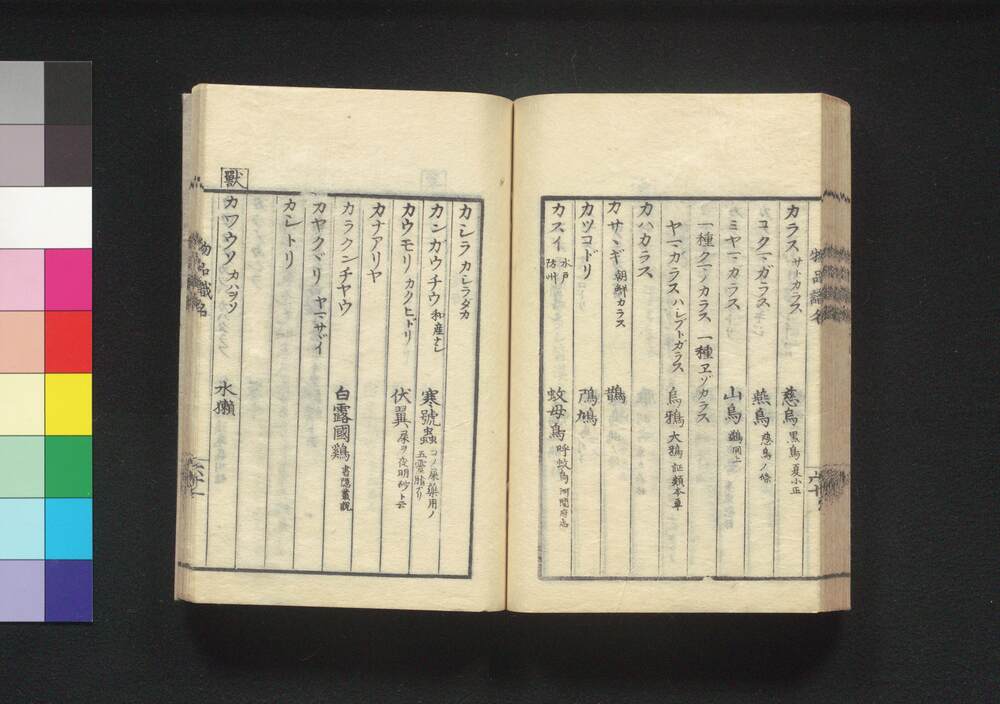 カラス サトカラス 慈烏 黒烏 夏小正
コクマガラス 燕烏 慈烏ノ條
ミヤマガラス 山烏 鸒 同上
一種クマカラス 一種ヱゾカラス
ヤマガラス ハシブトガラス 烏鴉 大觜 証類本草
カハカラス
カサヽギ 朝鮮カラス 鵲
カツコドリ 鳲鳩
カスイ 水戸 防州 蚊母鳥 呼蚊鳥 河間府志
物品識名
六十
カシラ カシラダカ
カンカウチウ 和産ナシ 寒號蟲 コノ屎藥用ノ五靈脂ナリ
カウモリ カクヒドリ 伏翼 屎ヲ夜明砂ト云
カナアリヤ
カラクンチヤウ 白露國鷄 書隠叢説
カヤクヾリ ヤマサヾイ
カシトリ
獸
カワウソ カハヲソ 水獺
物品識名